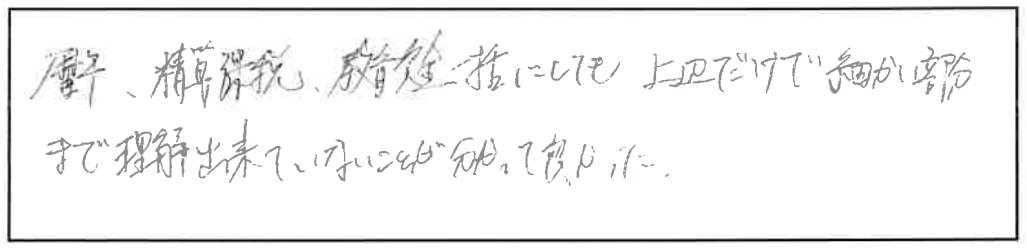 暦年、精算課税、教育資金一括にしても 上辺だけで細かい部分
まで理解出来ていないことが分かって良かった。